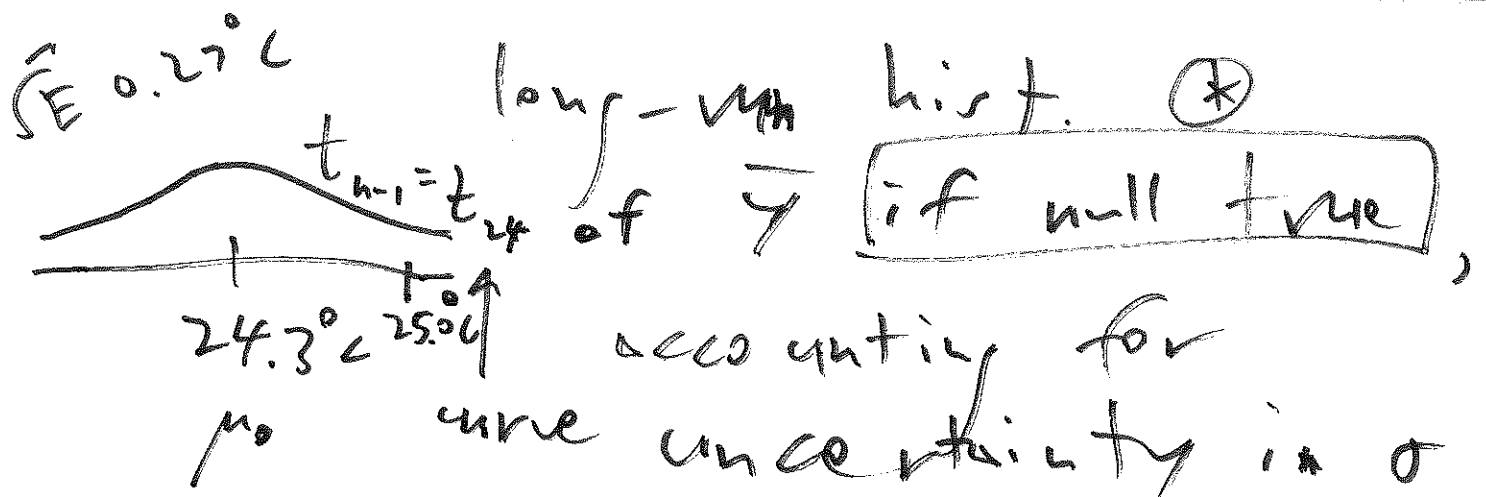 SE 0.27°C long-run hist. *
t n-1 = t 24 of y̅ if null true,
24.3°C 25.0°C accounting for
μ0 curve uncertainty in σ